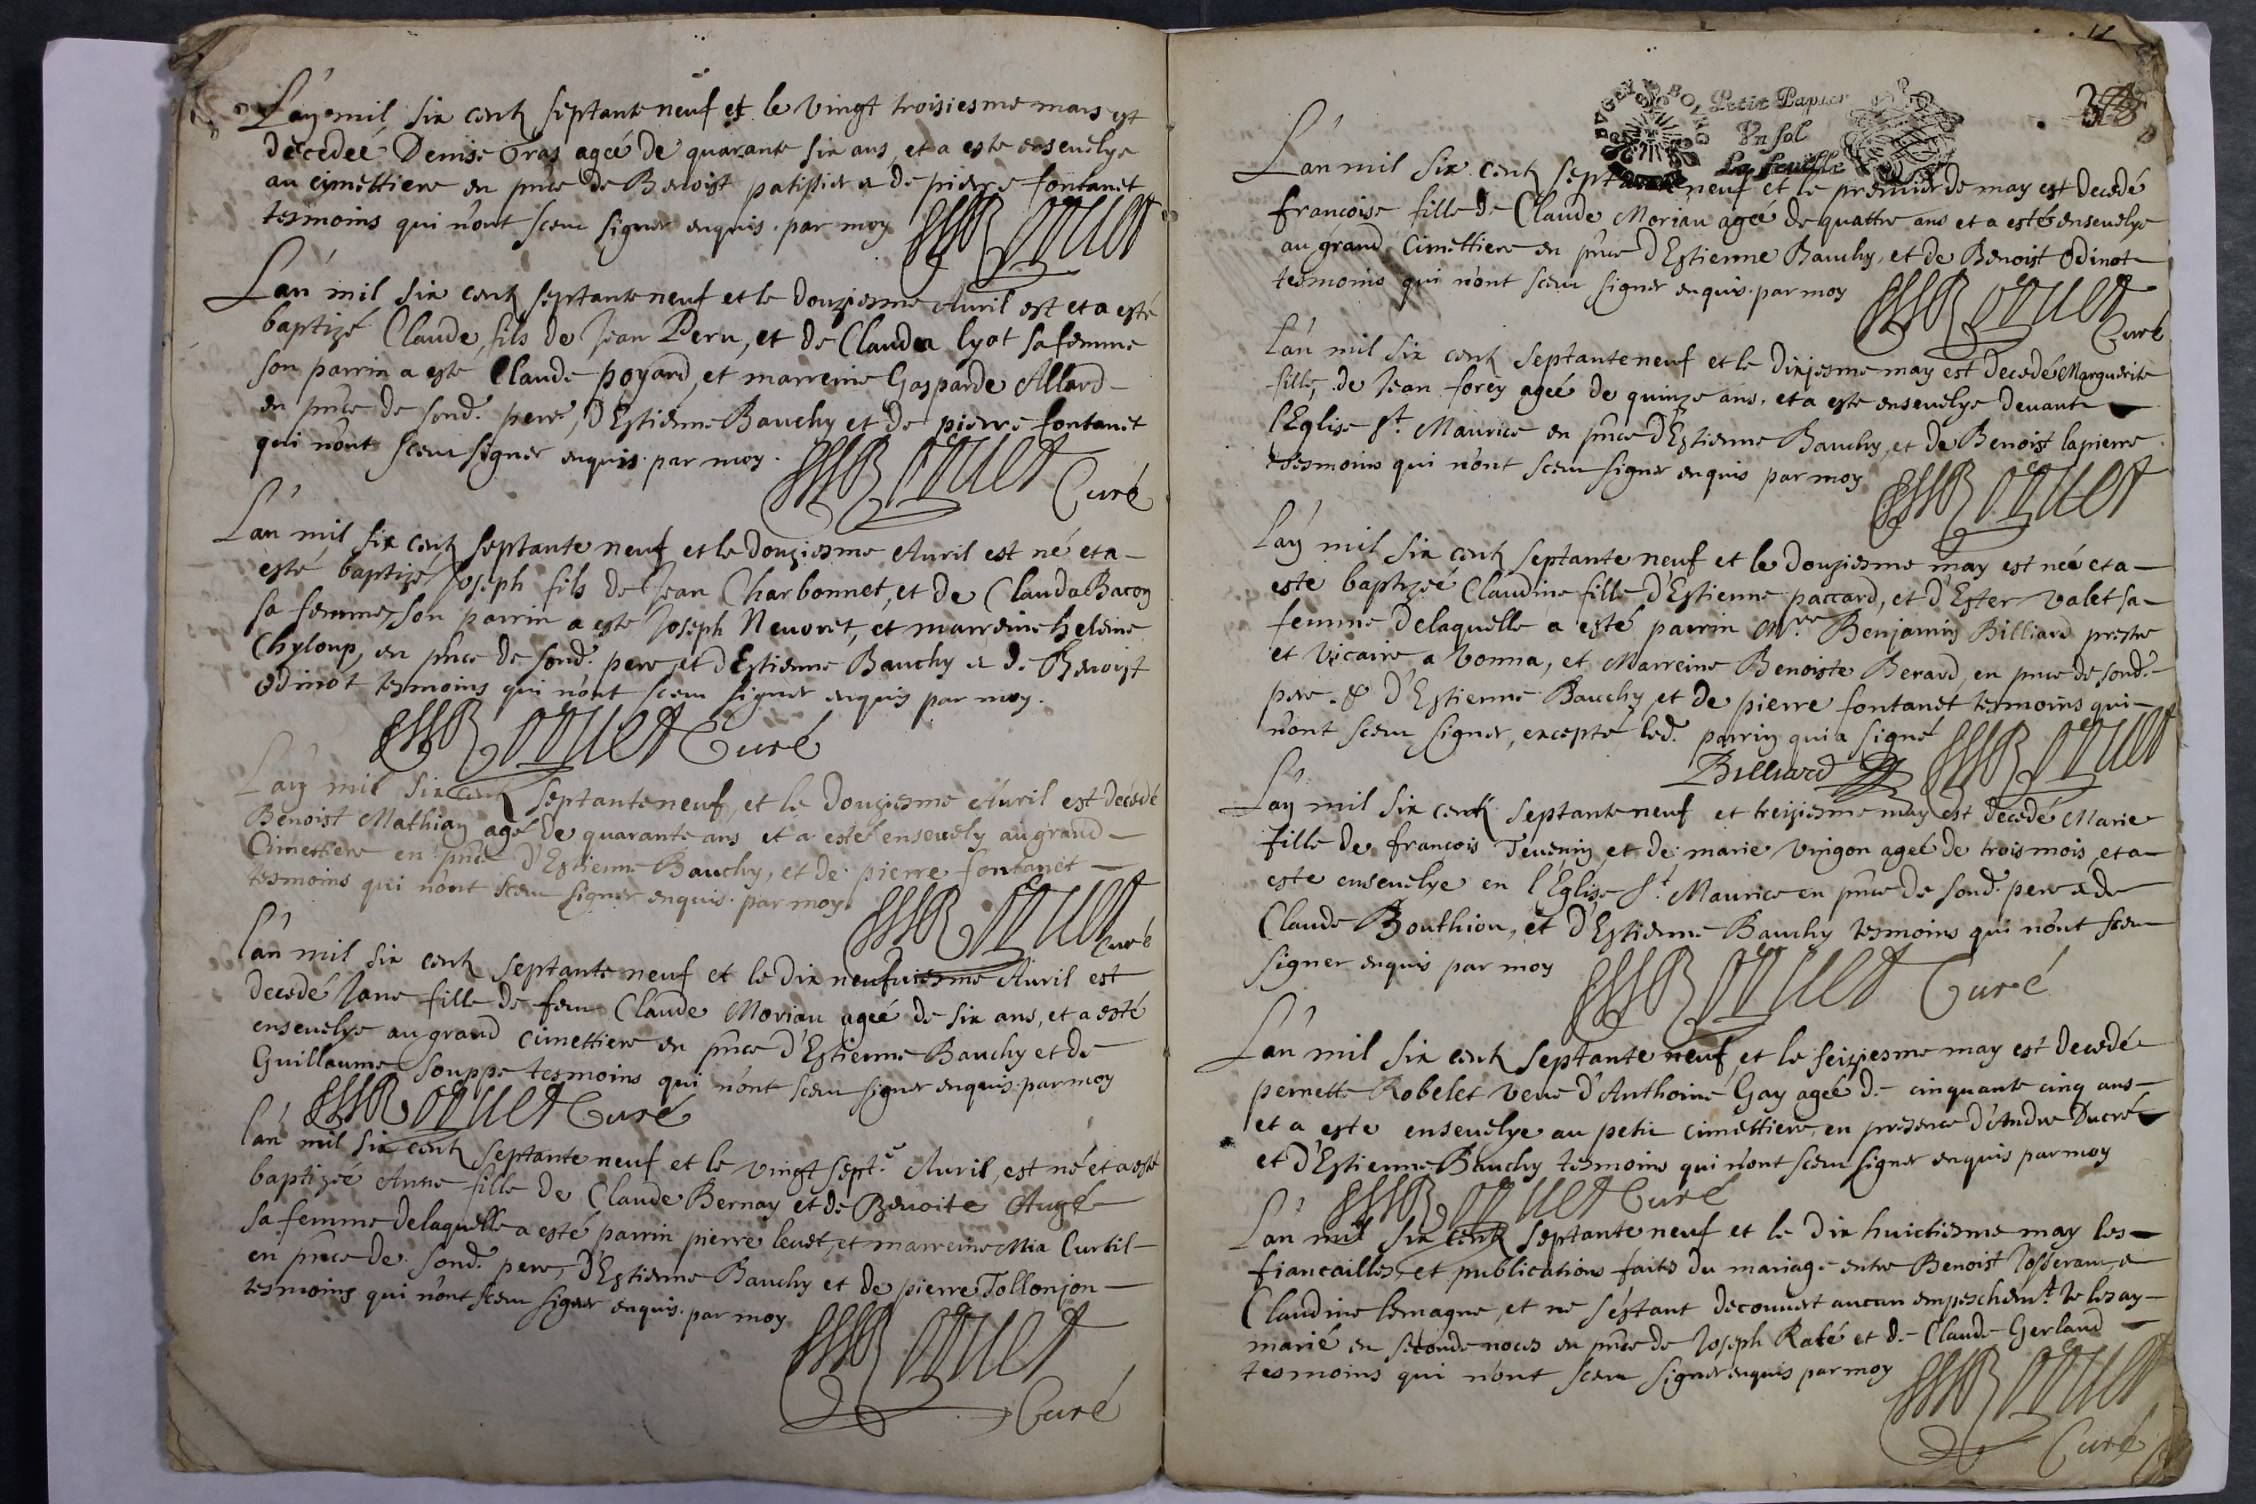 L'an mil six cents septante neuf et le vingt troisiesme mars est
decedeé Denise Gras ageé de quarante six ans et a este ensevelye
au cimettiere en pnce de Benoist patissier et de pierre fontanet
tesmoins qui n'ont sceu signer enquis par moy
L'an mil six cents septante neuf et le douziesme Avril est et a esté
baptizé Claude, fils de Jean Peru, et de Clauda lyot sa femme
son parrin a este Claude poyard, et marreine Gasparde Allard
en pnce de sond. pere, d'Estienne Bauchy et de pierre fontanet
qui n'ont sceu signer enquis par moy.
Curé
L'an mil six cents septante neuf et le douziesme Avril est né et a
esté baptizé Joseph fils de Jean Charbonnet, et de Clauda Bacon
sa femme, son parrin a este Joseph Neuvoret, et marreine heleine
Chyloup, en pnce de sond. pere, et d'Estienne Bauchy et de Benoist
Odinot tesmoins qui n'ont sceu signer enquis par moy.
Curé
L'an mil six cents septante neuf, et le douziesme Avril est decedé
Benoist Mathian agé de quarante ans et a esté ensevely au grand
Cimettiere en pnce d'Estienne Bauchy, et de pierre fontanet
tesmoins qui n'ont sceu signer enquis par moy.
Curé
L'an mil six cents septante neuf et le dix neufviesme Avril est
decedé Jane fille de feu Claude Moriau ageé de six ans, et a esté
ensevelye au grand cimettiere en pnce d'Estienne Bauchy et de
Guillaume Souppe tesmoins qui n'ont sceu signer enquis par moy
Curé
L'an mil six cents septante neuf et le vingt sept.e Avril, est né et a esté
baptizeé Anne fille de Claude Bernay et de Benoite Augé
sa femme de laquelle a esté parrin pierre levet, et marreine Mia Curtil
en pnce de sond. pere, d'Estienne Bauchy et de pierre Tollonjon
tesmoins qui n'ont sceu signer enquis par moy
Curé
12
BUGEY BOURG
Petit Papier
Un sol
La feuille
L'an mil six cents septante neuf et le premier de may est decedé
francoise fille de Claude Moriau ageé de quattre ans et a esté ensevelye
au grand Cimettiere en pnce d'Estienne Bauchy, et de Benoist Odinot
tesmoins qui n'ont sceu signer enquis par moy
Curé
L'an mil six cents septante neuf et le dixiesme may est decedé Marguerite
fille, de Jean forey ageé de quinze ans, et a este ensevelye devant
l'Eglise St. Maurice en pnce d'Estienne Bauchy, et de Benoist lapierre
tesmoins qui n'ont sceu signer enquis par moy
L'an mil six cents septante neuf et le douziesme may est neé et a
este baptizeé Claudine fille d'Estienne paccard, et d'Ester Valet sa
femme de laquelle a esté parrin Mre Benjamin Billiard prestre
et vicaire a Vonna, et Marreine Benoiste Berard, en pnce de sond.
pere & d'Estienne Bauchy et de pierre fontanet tesmoins qui
n'ont sceu signer, excepté led. parrin qui a signé
Billiard
L'an mil six cents septante neuf et treiziesme may est decedé Marie
fille de francois Tevenin et de marie Vingon ageé de trois mois, et a
este ensevelye en l'Eglise St. Maurice en pnce de sond. pere & de
Claude Bouthion, et d'Estienne Bauchy tesmoins qui n'ont sceu
signer enquis par moy
Curé
L'an mil six cents septante neuf, et le seiziesme may est decedé
pernette Robelet veve d'Anthoine Gay ageé de cinquante cinq ans
et a este ensevelye au petit cimettiere, en presence d'Andre Ducré
et d'Estienne Bauchy tesmoins qui n'ont sceu signer enquis par moy
Curé
L'an mil six cents septante neuf et le dix huictiesme may les
fiancailles, et publications faites du mariage entre Benoist Josserame, et
Claudine lemagne, et ne s'estant decouvert aucun empeschemt Je les ay
marié en seconde noces en pnce de Joseph Rafé et de Claude Gerland
tesmoins qui n'ont sceu signer enquis par moy
Curé